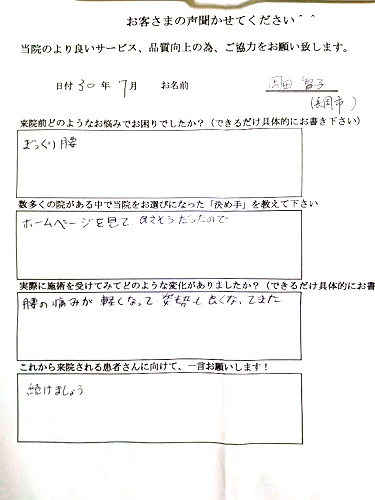 お客さまの声聞かせてください＾＾
当院のより良いサービス、品質向上の為、ご協力をお願い致します。
日付 30 年 7 月 お名前
(長岡市)
来院前どのようなお悩みでお困りでしたか？（できるだけ具体的にお書き下さい）
ぎっくり腰
数多くの院がある中で当院をお選びになった「決め手」を教えて下さい
ホームページを見て よさそうだったので
実際に施術を受けてみてどのような変化がありましたか？（できるだけ具体的にお書
腰の痛みが 軽くなって 姿勢も良くなってきた
これから来院される患者さんに向けて、一言お願いします！
続けましょう